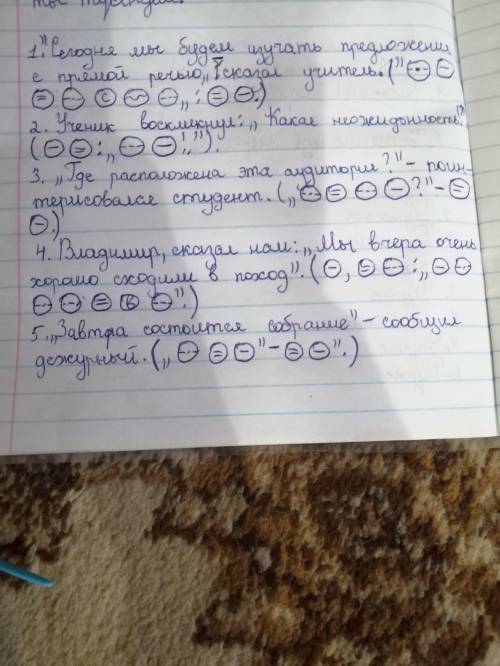 ты
1."Сегодня мы будем изучать предложения
с прямой речью,, - сказал учитель. ("⊖ ⊖
⊜ ⊖ ⓒ ⊖ ⊖,, : ⊜ ⊖.)
2. Ученик воскликнул: ,, Какая неожиданность!"
(⊖ ⊜ : ,, ⊖ ⊖!,,").
3. ,, Где расположена эта аудитория?" - поин-
терисовался студент. (,, ⊖ ⊜ ⊖ ⊖?" - ⊜
⊖.)
4. Владимир, сказал нам: ,, Мы вчера очень
хорошо сходили в поход". (⊖, ⊜ ⊖ : ,, ⊖ ⊖
⊖ ⊖ ⊜ ⓑ ⊖".)
5. ,, Завтра состоится собрание" - сообщил
дежурный. (,, ⊖ ⊜ ⊖" - ⊜ ⊖".)